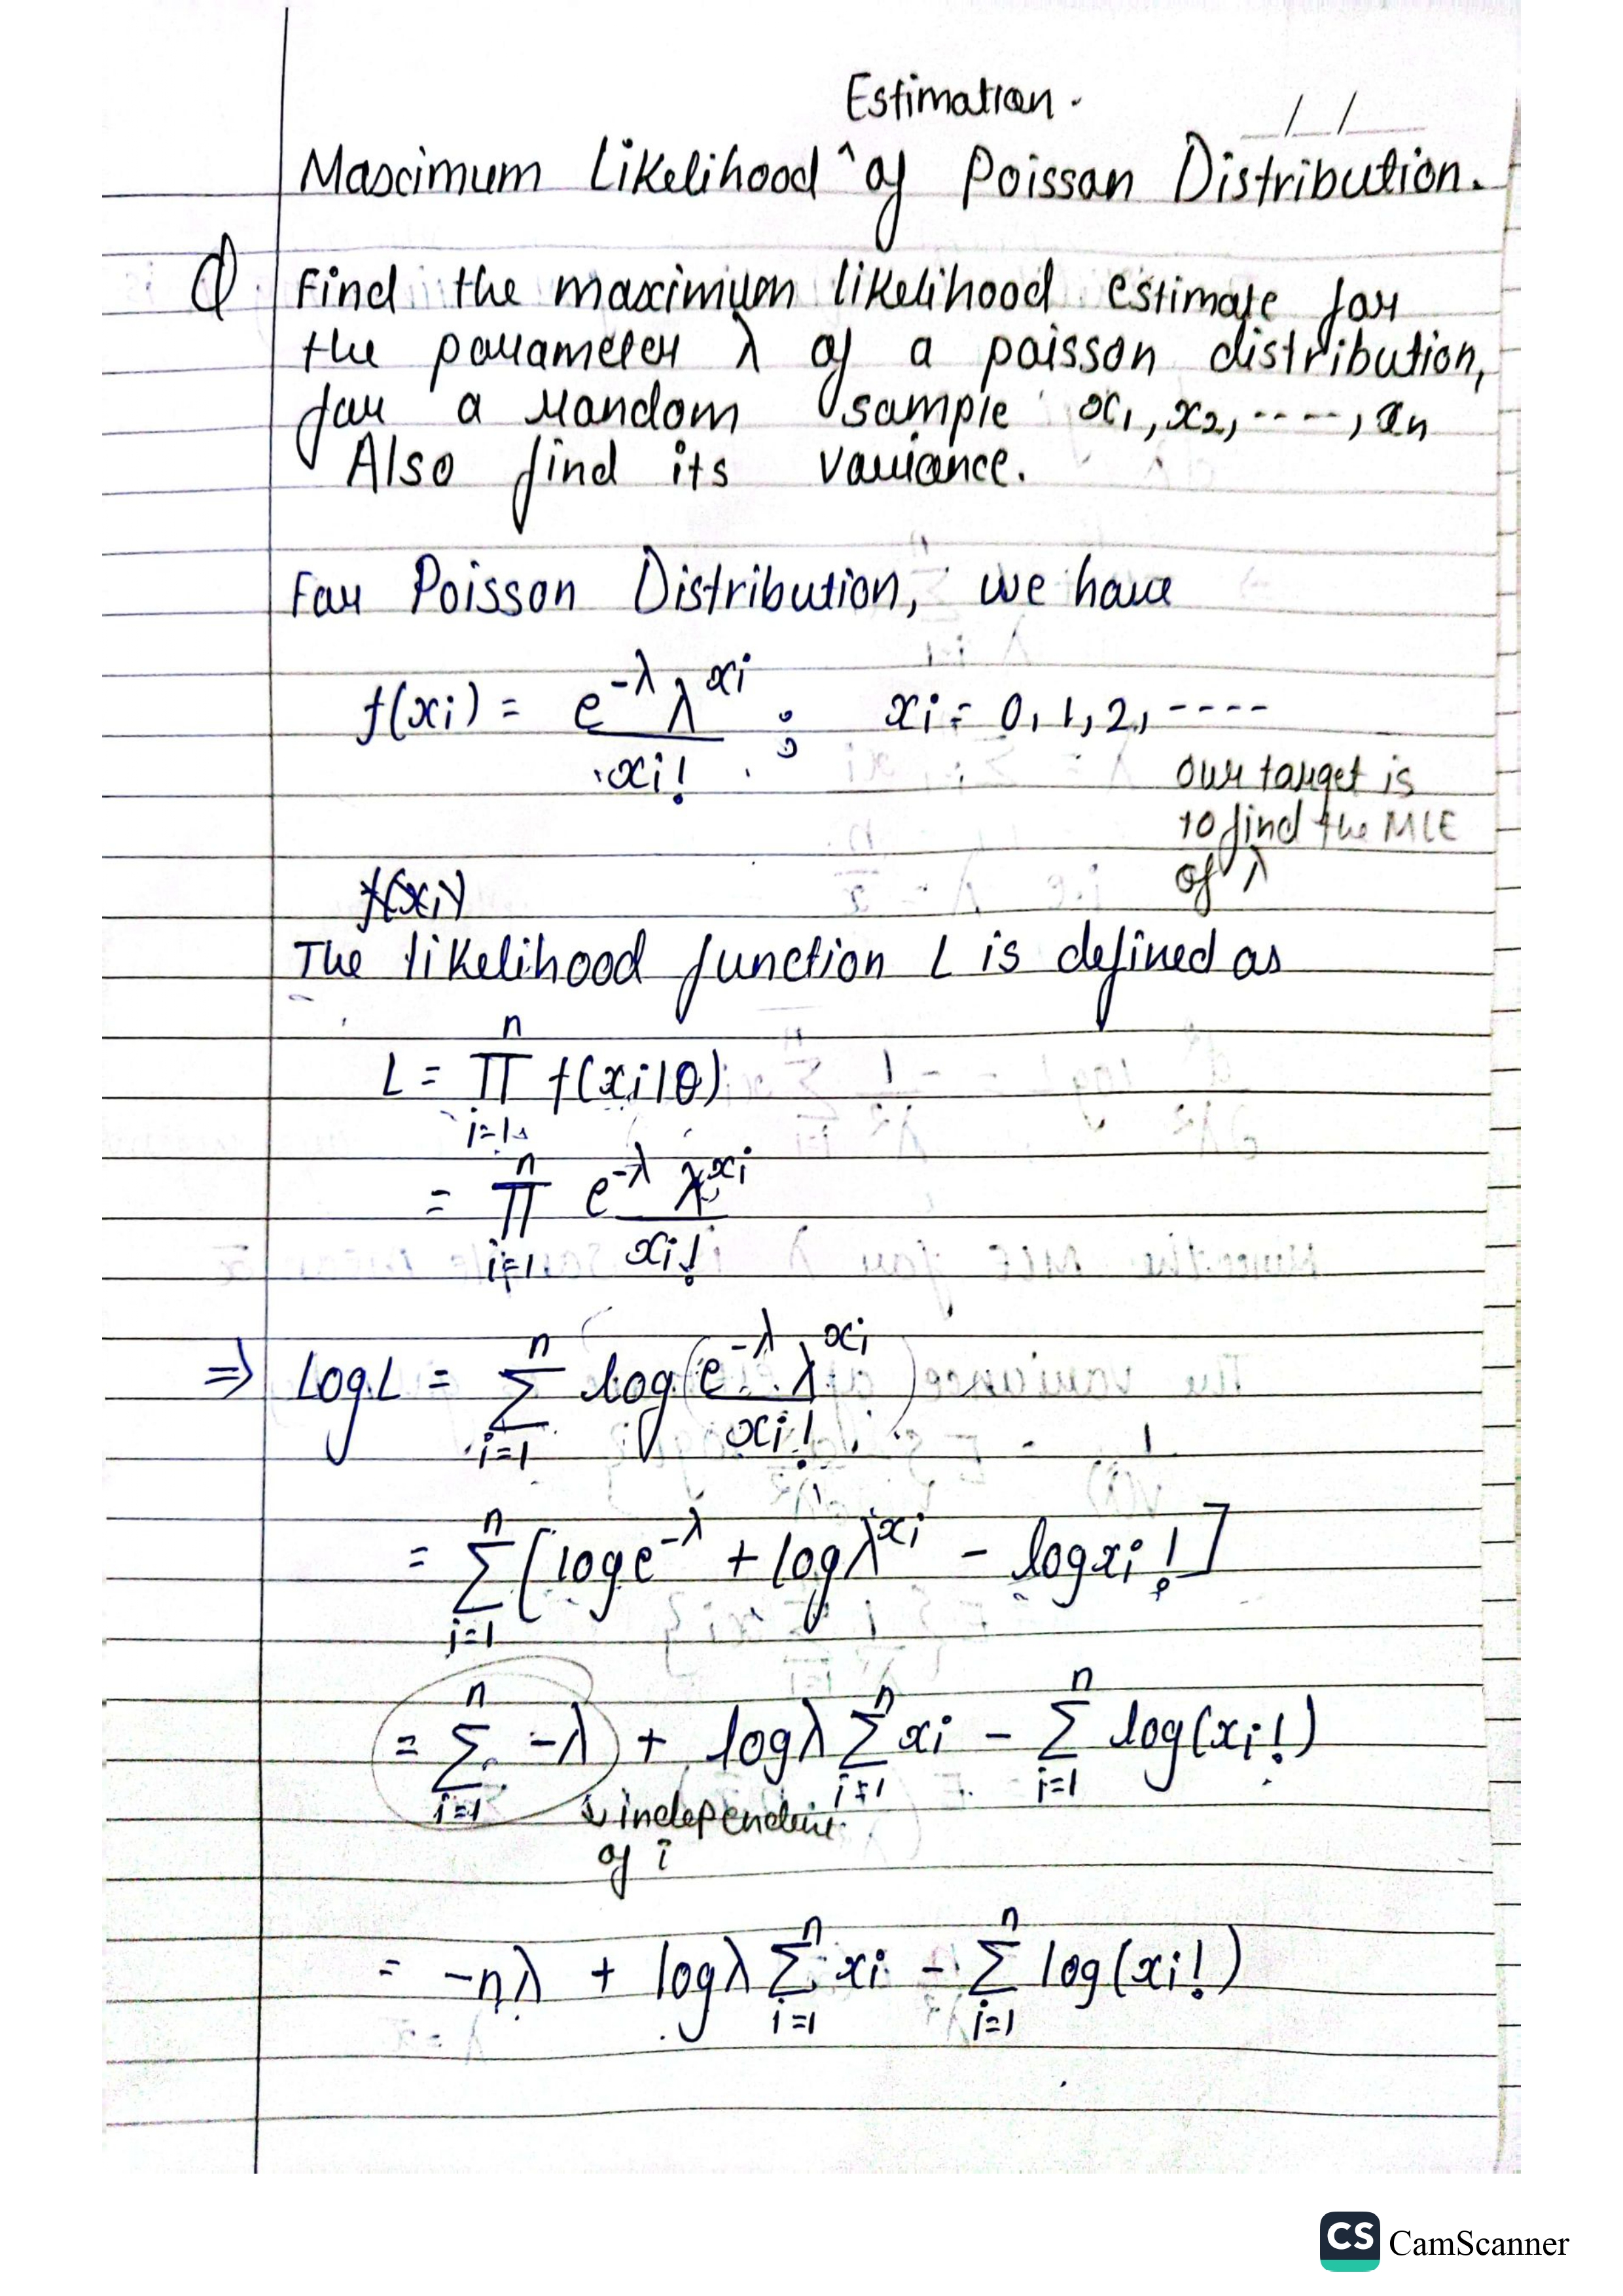 Estimation.
__/__/__
Maximum Likelihood ^ of Poisson Distribution.
Q Find the maximum likelihood estimate for
the parameter λ of a poisson distribution,
for a random sample x₁, x₂, ----, xₙ
Also find its variance.
For Poisson Distribution, we have
f(xi) = e^-λ λ^xi / xi! ; xi = 0, 1, 2, ----
our target is
to find the MLE
of λ
f(xi)
The likelihood function L is defined as
L = n ∏ i=1 f(xi|θ)
= n ∏ i=1 e^-λ λ^xi / xi!
⇒ Log L = n ∑ i=1 log (e^-λ λ^xi / xi!)
= n ∑ i=1 [log e^-λ + log λ^xi - log xi!]
= n ∑ i=1 -λ + log λ n ∑ i=1 xi - n ∑ i=1 log(xi!)
↳ independent
of i
= -nλ + log λ n ∑ i=1 xi - n ∑ i=1 log(xi!)
CS CamScanner